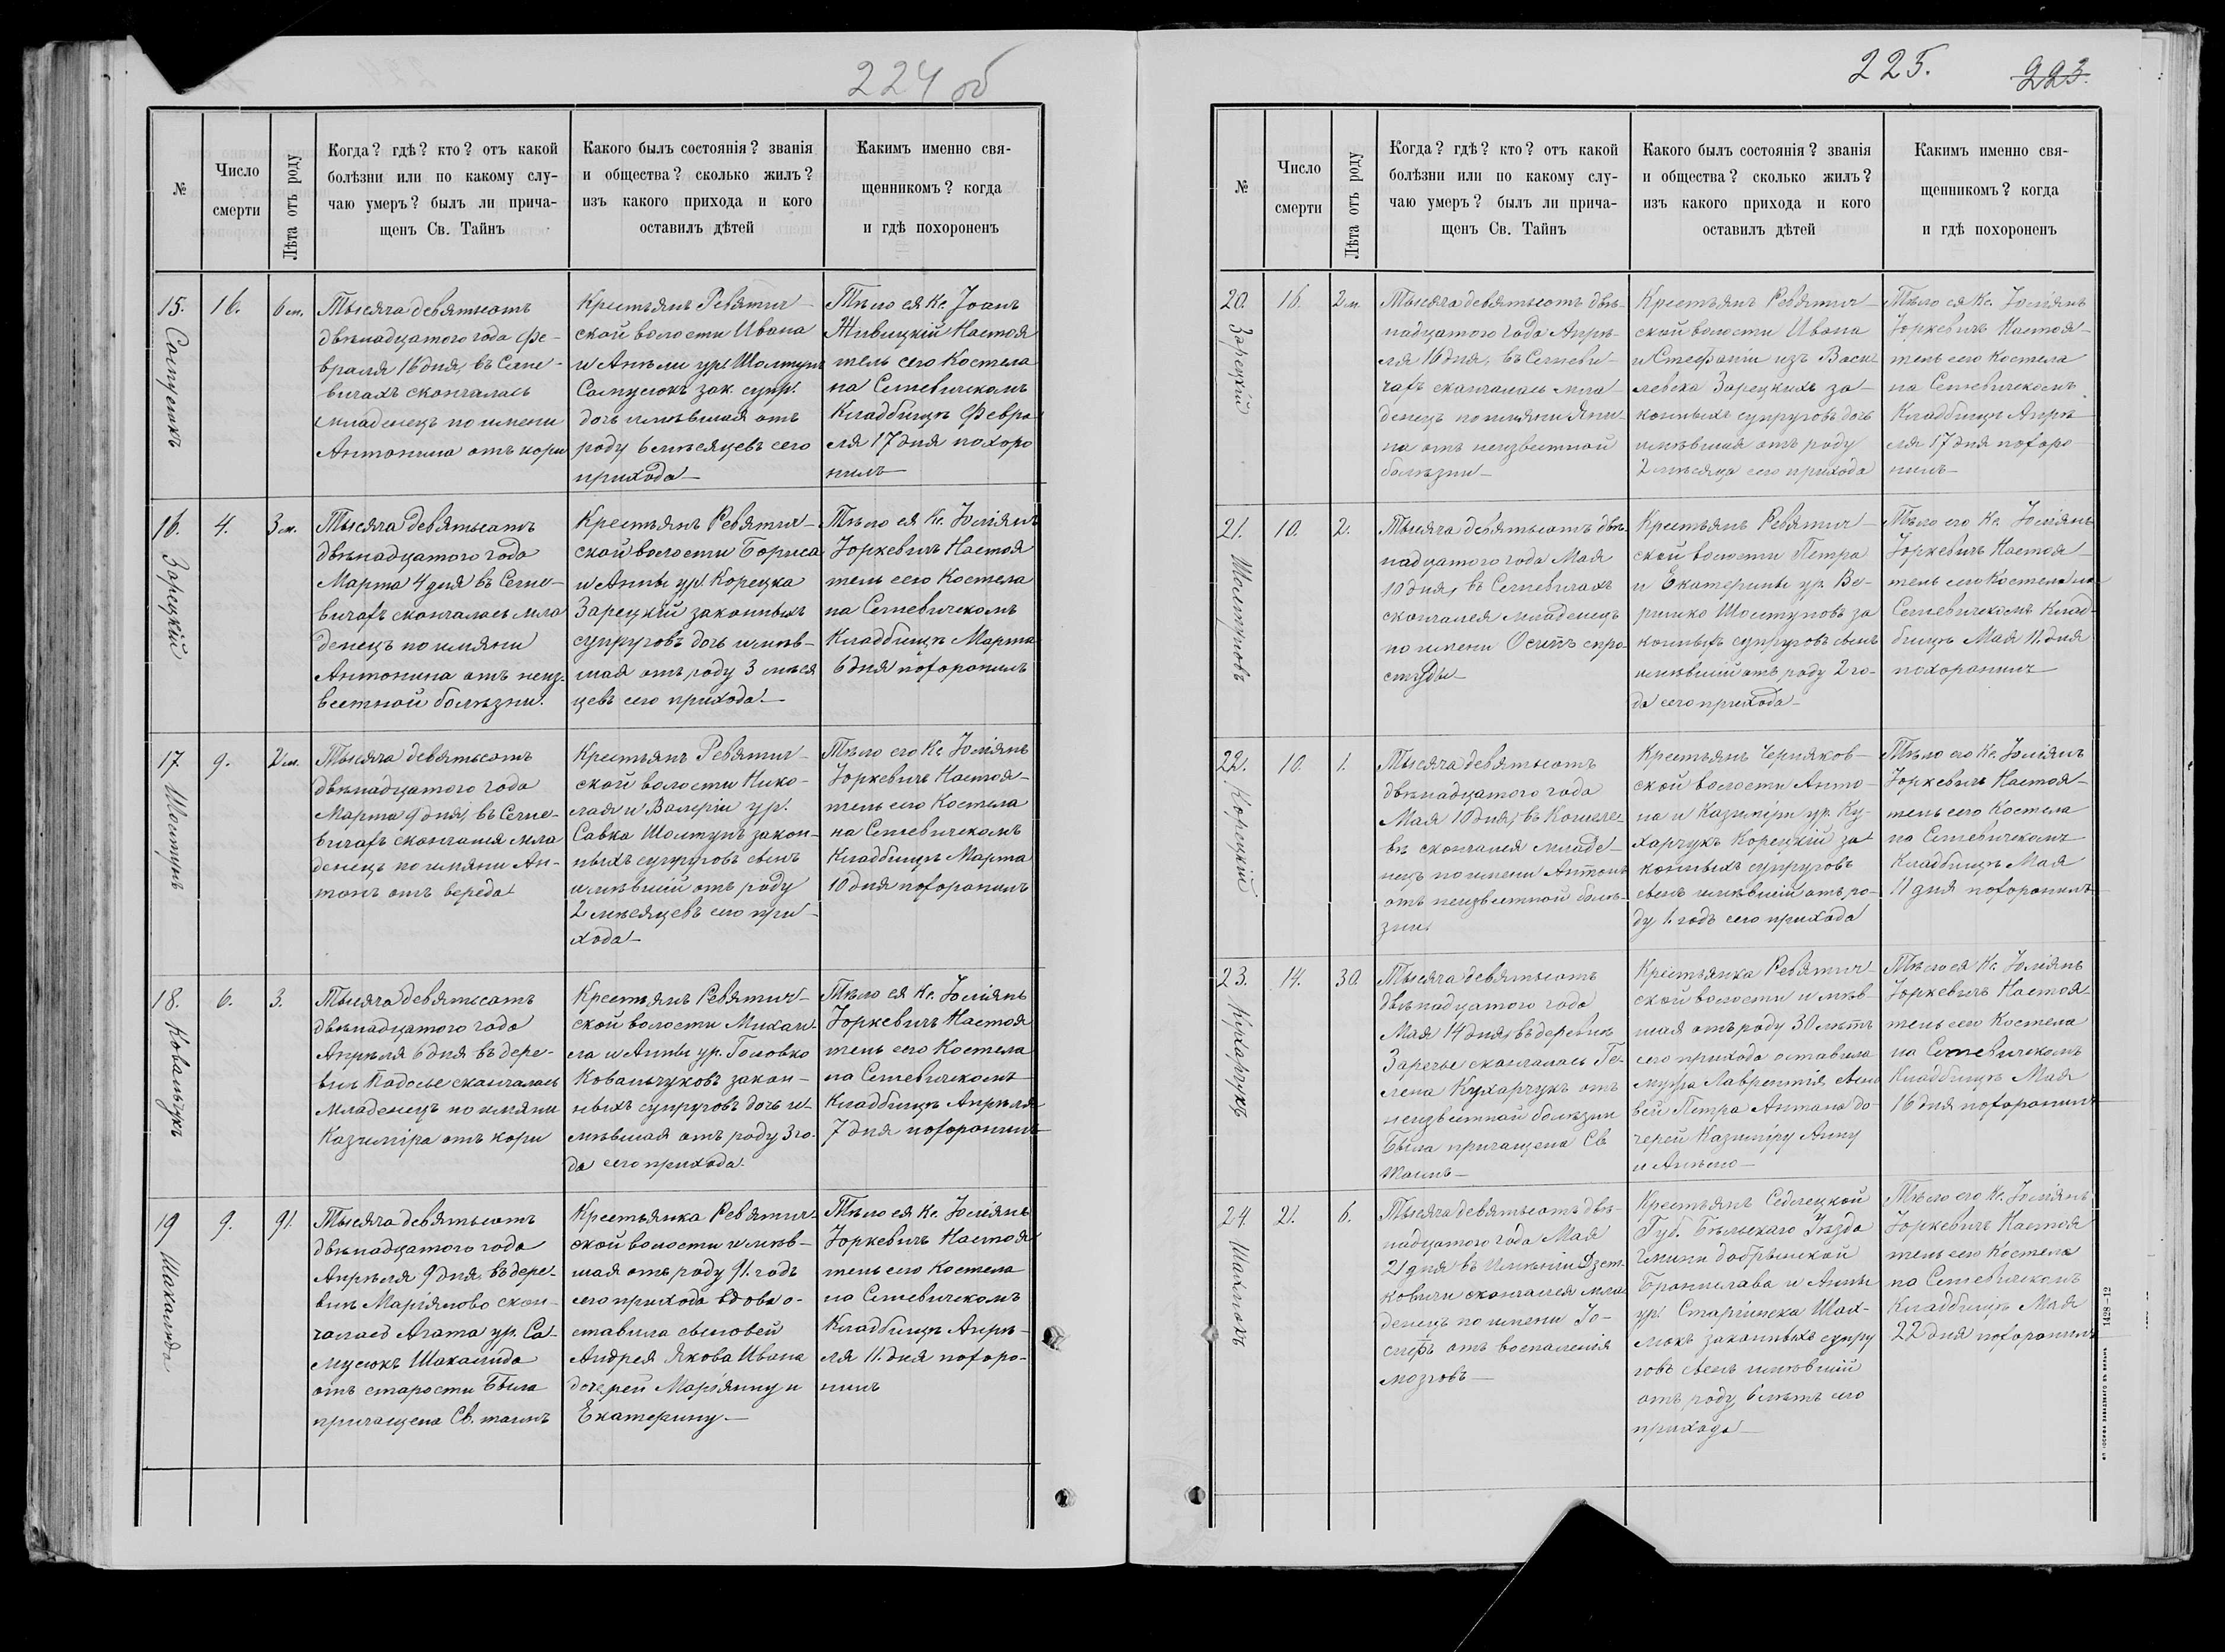 224 об
№
Число
смерти
Лѣта отъ роду
Когда? гдѣ? кто? отъ какой
болѣзни или по какому слу-
чаю умеръ? былъ ли прича-
щенъ Св. Тайнъ
Какого былъ состоянія? званія
и общества? сколько жилъ?
изъ какого прихода и кого
оставилъ дѣтей
Какимъ именно свя-
щенникомъ? когда
и гдѣ похороненъ
15.
16.
6 м.
Тысяча девятьсотъ
двѣнадцатого года Фе-
враля 16 дня, въ Сегне-
вичахъ скончалась
младенецъ по имени
Антонина отъ кори
Крестьянъ Ревятич-
ской волости Ивана
и Анѣли ур. Шолтунъ
зак. супр.
дочь имѣвшая отъ
роду 6 мѣсяцевъ сего
прихода
Тѣло ея Кс. Іоанъ
Живицкій Настоя
тель сего Костела
на Сегневическомъ
Кладбищѣ Февра
ля 17 дня похоро
нилъ
16. Зарецкій
4.
3 м.
Тысяча девятьсотъ
двѣнадцатого года
Марта 4 дня въ Сегне-
вичахъ скончалась мла
денецъ по имяни
Антонина отъ неиз-
вестной болѣзни.
Крестьянъ Ревятич-
ской волости Бориса
и Анны ур. Корецка
Зарецкій законныхъ
супруговъ дочь имѣв-
шая отъ роду 3 мѣся
цевъ сего прихода
Тѣло ея Кс. Юліянъ
Юркевичъ Настоя
тель сего Костела
на Сегневическомъ
Кладбищѣ Марта
6 дня похоронилъ
17 Шолтунъ
9.
2 м.
Тысяча девятьсотъ
двѣнадцатого года
Марта 9 дня, въ Сегне-
вичахъ скончался мла
денецъ по имяни Ан-
тонъ отъ вереда
Крестьянъ Ревятич-
ской волости Нико-
лая и Валеріи ур.
Савка Шолтунъ закон-
ныхъ супруговъ сынъ
имѣвшій отъ роду
2 мѣсяцевъ сего при-
хода
Тѣло его Кс. Юліянъ
Юркевичъ Настоя-
тель сего Костела
на Сегневическомъ
Кладбищѣ Марта
10 дня похоронилъ
18. Ковальчукъ
6.
3.
Тысяча девятьсотъ
двѣнадцатого года
Апрѣля 6 дня въ дере-
внѣ Подосье скончалась
младенецъ по имяни
Казиміра отъ кори
Крестьянъ Ревятич-
ской волости Михаи-
ла и Анны ур. Головко
Ковальчуковъ закон-
ныхъ супруговъ дочь и-
мѣвшая отъ роду 3 го-
да сего прихода.
Тѣло ея Кс. Юліянъ
Юркевичъ Настоя
тель сего Костела
на Сегневическомъ
Кладбищѣ Апрѣля
7 дня похоронилъ
19 Шакалида
9.
91.
Тысяча девятьсотъ
двѣнадцатого года
Апрѣля 9 дня, въ дере-
внѣ Маріяново скон-
чалась Агата ур. Са-
мусюкъ Шакалида
отъ старости была
причащена Св. таинъ
Крестьянка Ревятич-
ской волости имѣв-
шая отъ роду 91. годъ
сего прихода вдова о-
ставила сыновей
Андрея Якова Ивана
дочерей Маріянну и
Екатерину.
Тѣло ея Кс. Юліянъ
Юркевичъ Настоя
тель сего Костела
на Сегневическомъ
Кладбищѣ Апрѣ-
ля 11. дня похоро-
нилъ
225.
223.
№
Число
смерти
Лѣта отъ роду
Когда? гдѣ? кто? отъ какой
болѣзни или по какому слу-
чаю умеръ? былъ ли прича-
щенъ Св. Тайнъ
Какого былъ состоянія? званія
и общества? сколько жилъ?
изъ какого прихода и кого
оставилъ дѣтей
Какимъ именно свя-
щенникомъ? когда
и гдѣ похороненъ
20. Зарецкій
16.
2 м.
Тысяча девятьсотъ двѣ-
надцатого года Апрѣ-
ля 16 дня, въ Сегневи-
чахъ скончалась мла
денецъ по имяни Яни-
на отъ неизвестной
болѣзни
Крестьянъ Ревятич-
ской волости Ивана
и Стефаніи изъ
Зарецкихъ за-
конныхъ супруговъ дочь
имѣвшая отъ роду
2 мѣсяца сего прихода
Тѣло ея Кс. Юліянъ
Юркевичъ Настоя-
тель сего Костела
на Сегневическомъ
Кладбищѣ Апрѣ
ля 17 дня похоро
нилъ
21. Шолтуновъ
10.
2.
Тысяча девятьсотъ двѣ-
надцатого года Мая
10 дня, въ Сегневичахъ
скончался младенецъ
по имени Осипъ
студы
Крестьянъ Ревятич-
ской волости Петра
и Екатерины ур. Ве-
ринко Шолтуновъ за
конныхъ супруговъ сынъ
имѣвшій отъ роду 2 го-
да сего прихода
Тѣло его Кс. Юліянъ
Юркевичъ Настоя-
тель сего Костела на
Сегневическомъ Клад-
бищѣ Мая 11. дня
похоронилъ
22. Корецкій
10.
1.
Тысяча девятьсотъ
двѣнадцатого года
Мая 10 дня, въ Кошеле-
вѣ скончался младе-
нецъ по имени Антонъ
отъ неизвестной болѣ-
зни
Крестьянъ Черняков-
ской волости Анто-
на и Казиміры ур. Ку-
харчукъ Корецкій за
конныхъ супруговъ
сынъ имѣвшій отъ ро-
ду 1. годъ сего прихода
Тѣло его Кс. Юліянъ
Юркевичъ Настоя-
тель сего Костела
на Сегневическомъ
Кладбищѣ Мая
11 дня похоронилъ
23. Кухарчукъ
14.
30.
Тысяча девятьсотъ
двѣнадцатого года
Мая 14 дня, въ деревнѣ
Заречье скончалась Ге-
лена Кухарчукъ отъ
неизвестной болѣзни
Была причащена Св
таинъ
Крестьянка Ревятич-
ской волости имѣв-
шая отъ роду 30 лѣтъ
сего прихода оставила
мужа Лаврентія сыно
вей Петра Антона до-
черей Казиміру Анну
и Анѣлю
Тѣло ея Кс. Юліянъ
Юркевичъ Настоя-
тель сего Костела
на Сегневическомъ
Кладбищѣ Мая
16 дня похоронилъ
24. Шахлюкъ
21.
6.
Тысяча девятьсотъ двѣ-
надцатого года Мая
21 дня въ Имѣніи
ковичи скончался мла
денецъ по имени Іо-
сифъ отъ воспаленія
мозговъ
Крестьянъ Седлецкой
Губ. Бѣльскаго Уѣзда
Гмины Добрынской
Бронислава и Анны
ур. Шах-
люкъ законныхъ супру
говъ сынъ имѣвшій
отъ роду 6 лѣтъ сего
прихода
Тѣло его Кс. Юліянъ
Юркевичъ Настоя
тель сего Костела
на Сегневическомъ
Кладбищѣ Мая
22 дня похоронилъ
1428-12